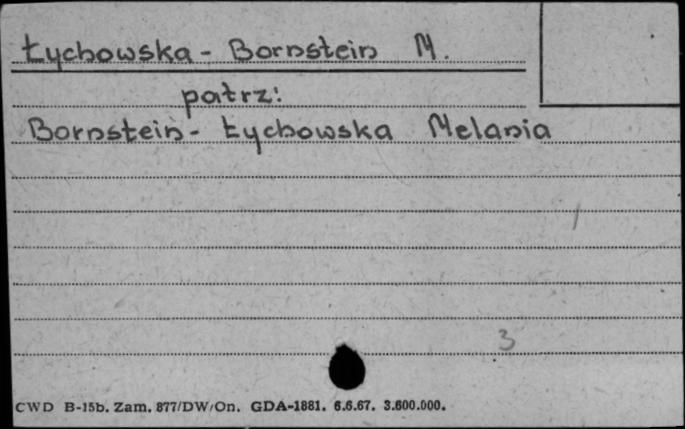 Łychowska - Bornstein M.
patrz:
Bornstein - Łychowska Melania
/
3
CWD B-15b. Zam. 877/DW/On. GDA-1881. 6.6.67. 3.600.000.